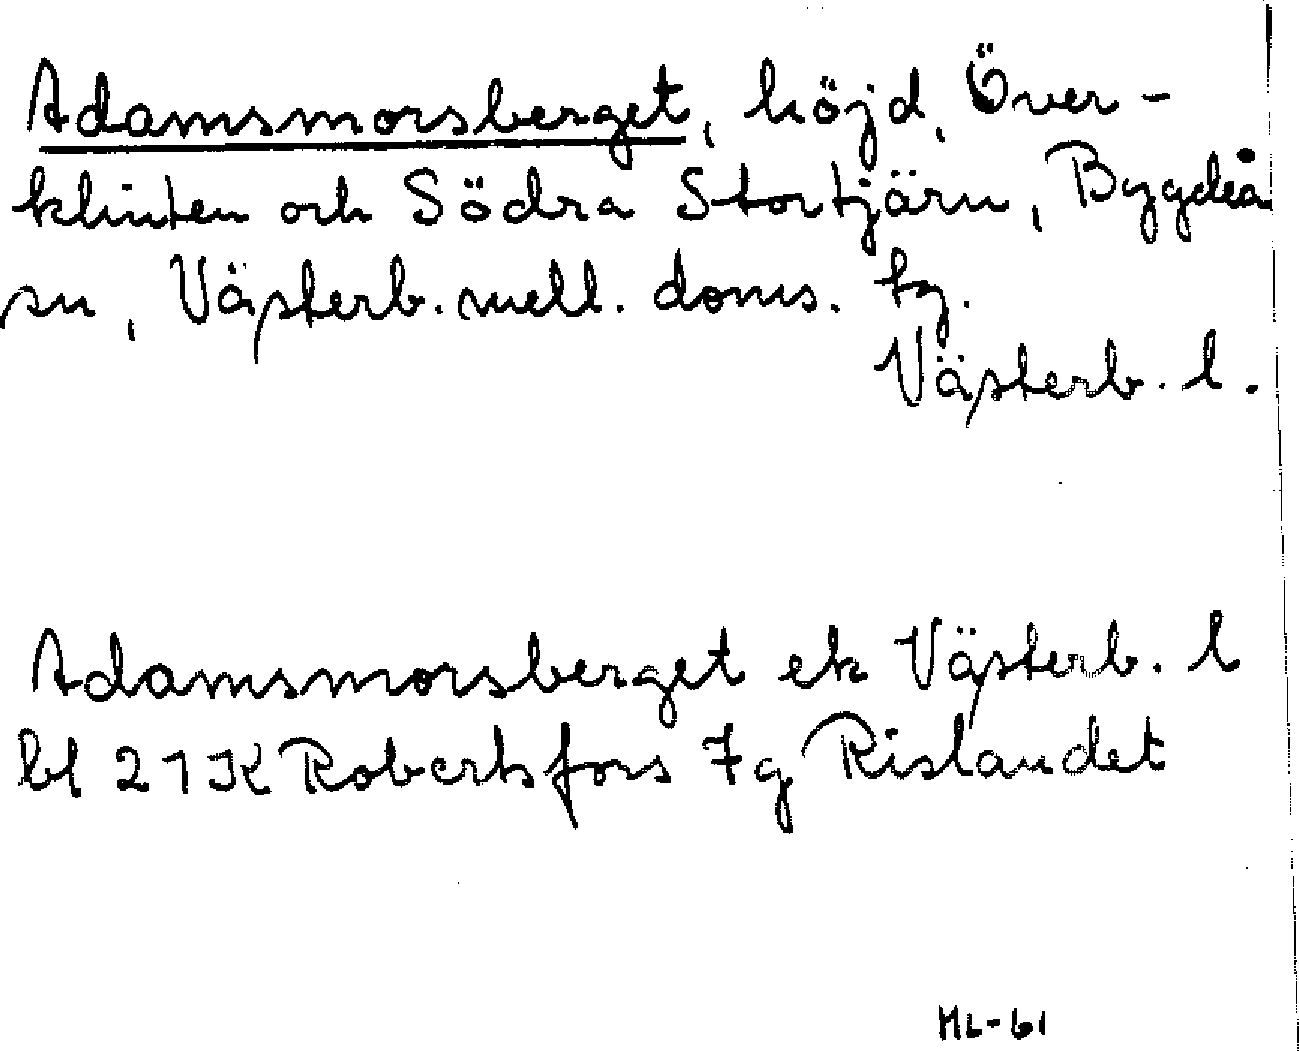 Adamsmorsberget, höjd, Över-
klinten och Södra Stortjärn, Bygdeå
sn, Västerb. mell. doms. tg.
Västerb. l.
Adamsmorsberget ek Västerb. l
bl 21K Robertsfors 7g Rislandet
ML-61